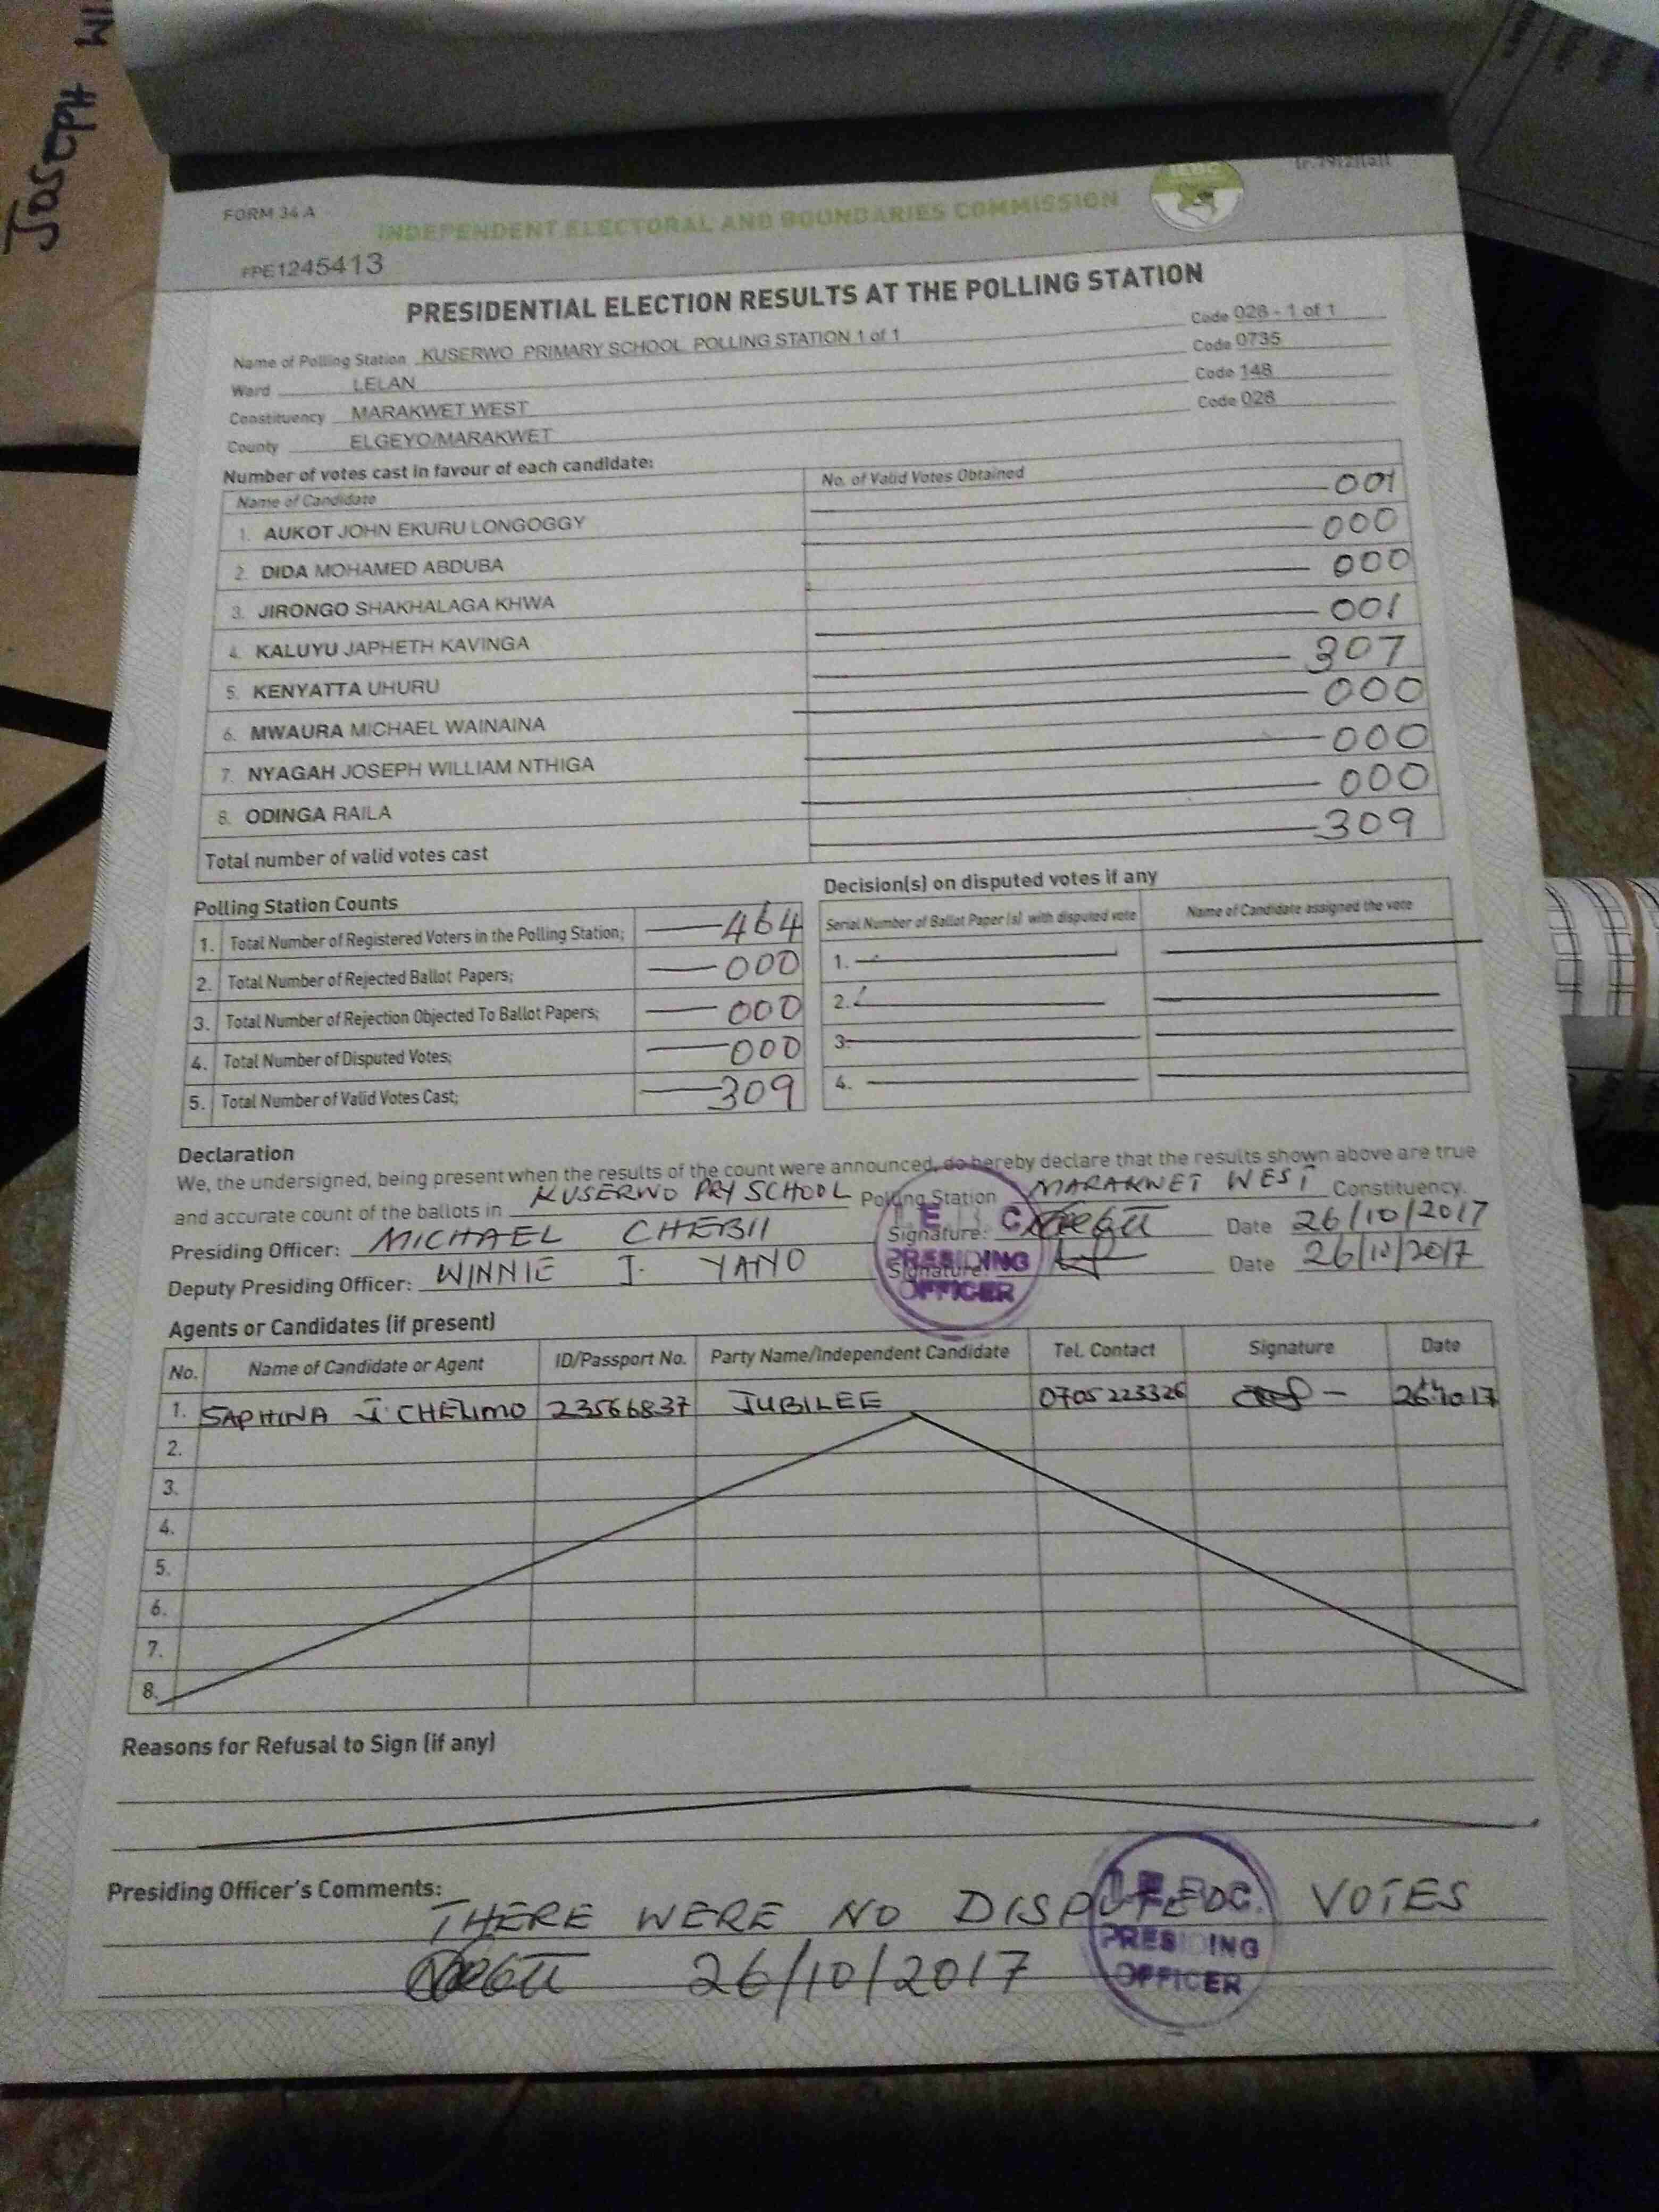 JOSEPH
FORM 34 A
INDEPENDENT ELECTORAL AND BOUNDARIES COMMISSION
IEBC
PE1245413
PRESIDENTIAL ELECTION RESULTS AT THE POLLING STATION
Name of Polling Station KUSERWO PRIMARY SCHOOL POLLING STATION 1 of 1 Code 028 - 1 of 1
Ward LELAN Code 0735
Constituency MARAKWET WEST Code 148
County ELGEYO/MARAKWET Code 028
Number of votes cast in favour of each candidate:
Name of Candidate No. of Valid Votes Obtained
1. AUKOT JOHN EKURU LONGOGGY 001
2. DIDA MOHAMED ABDUBA 000
3. JIRONGO SHAKHALAGA KHWA 000
4. KALUYU JAPHETH KAVINGA 001
5. KENYATTA UHURU 307
6. MWAURA MICHAEL WAINAINA 000
7. NYAGAH JOSEPH WILLIAM NTHIGA 000
8. ODINGA RAILA 000
Total number of valid votes cast 309
Polling Station Counts
1. Total Number of Registered Voters in the Polling Station; 464
2. Total Number of Rejected Ballot Papers; 000
3. Total Number of Rejection Objected To Ballot Papers; 000
4. Total Number of Disputed Votes; 000
5. Total Number of Valid Votes Cast; 309
Decision(s) on disputed votes if any
Serial Number of Ballot Paper(s) with disputed vote Name of Candidate assigned the vote
1.
2.
3.
4.
Declaration
We, the undersigned, being present when the results of the count were announced, do hereby declare that the results shown above are true
and accurate count of the ballots in KUSERWO PRY SCHOOL Polling Station MARAKWET WEST Constituency.
Presiding Officer: MICHAEL CHEBII Signature: Date 26/10/2017
Deputy Presiding Officer: WINNIE J. YANO Signature: Date 26/10/2017
PRESIDING
OFFICER
Agents or Candidates (if present)
No. Name of Candidate or Agent ID/Passport No. Party Name/Independent Candidate Tel. Contact Signature Date
1. SAPHINA J CHELIMO 23566837 JUBILEE 0705223326 26th 10 17
2.
3.
4.
5.
6.
7.
8.
Reasons for Refusal to Sign (if any)
Presiding Officer's Comments:
THERE WERE NO DISPUTED VOTES
26/10/2017
PRESIDING
OFFICER